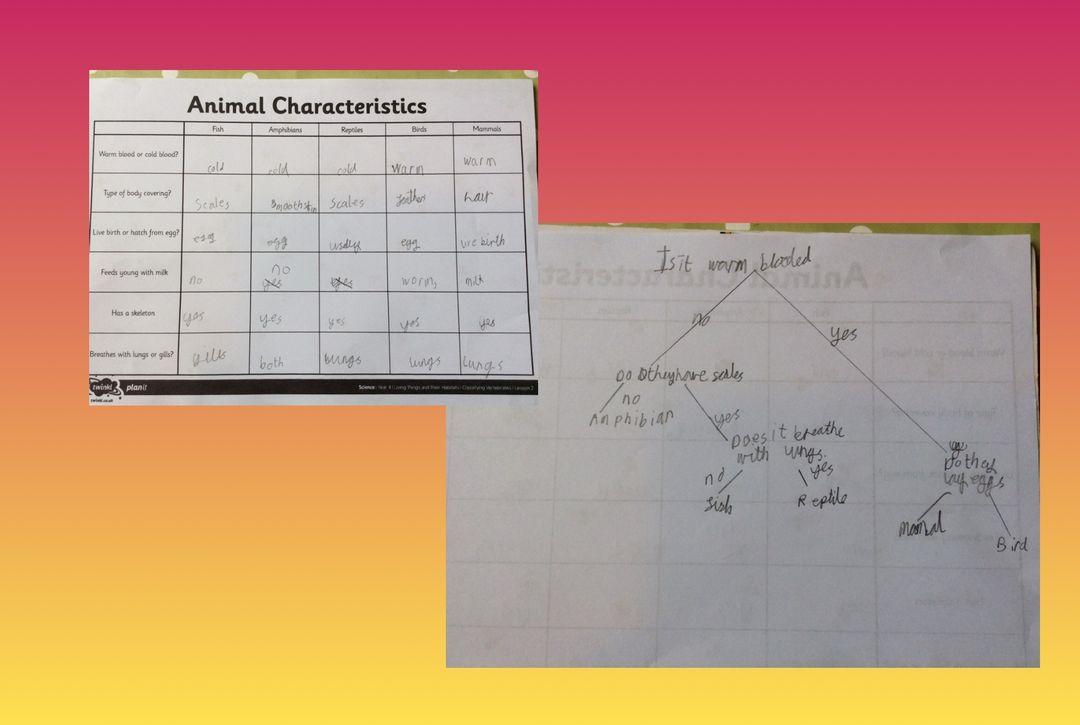 Animal Characteristics
Fish Amphibians Reptiles Birds Mammals
Warm blood or cold blood? cold cold cold warm warm
Type of body covering? Scales smooth skin scales feather hair
Live birth or hatch from egg? egg egg egg live birth
Feeds young with milk no no yes yes worms milk
Has a skeleton yes yes yes yes yes
Breathes with lungs or gills? gills both lungs lungs lungs
twinkl planit
twinkl.co.uk
Is it warm blooded
no
yes
Do they have scales
no
Amphibian
yes
Does it breathe
with lungs.
no
yes
fish
Reptile
Do they
lay eggs
Bird